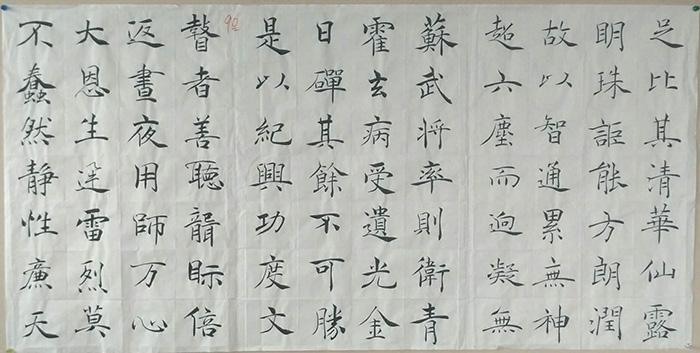 足比其清華仙露
眀珠詎能方朗潤
故以智通累無神
超六塵而逈凝無
蘇武將率則衛青
霍去病受遺光金
日磾其餘不可勝
是以紀興功度文
瞽者善聽聾眎倍
返晝夜用師万心
大恩生迅雷烈莫
不蠢然静性廉天